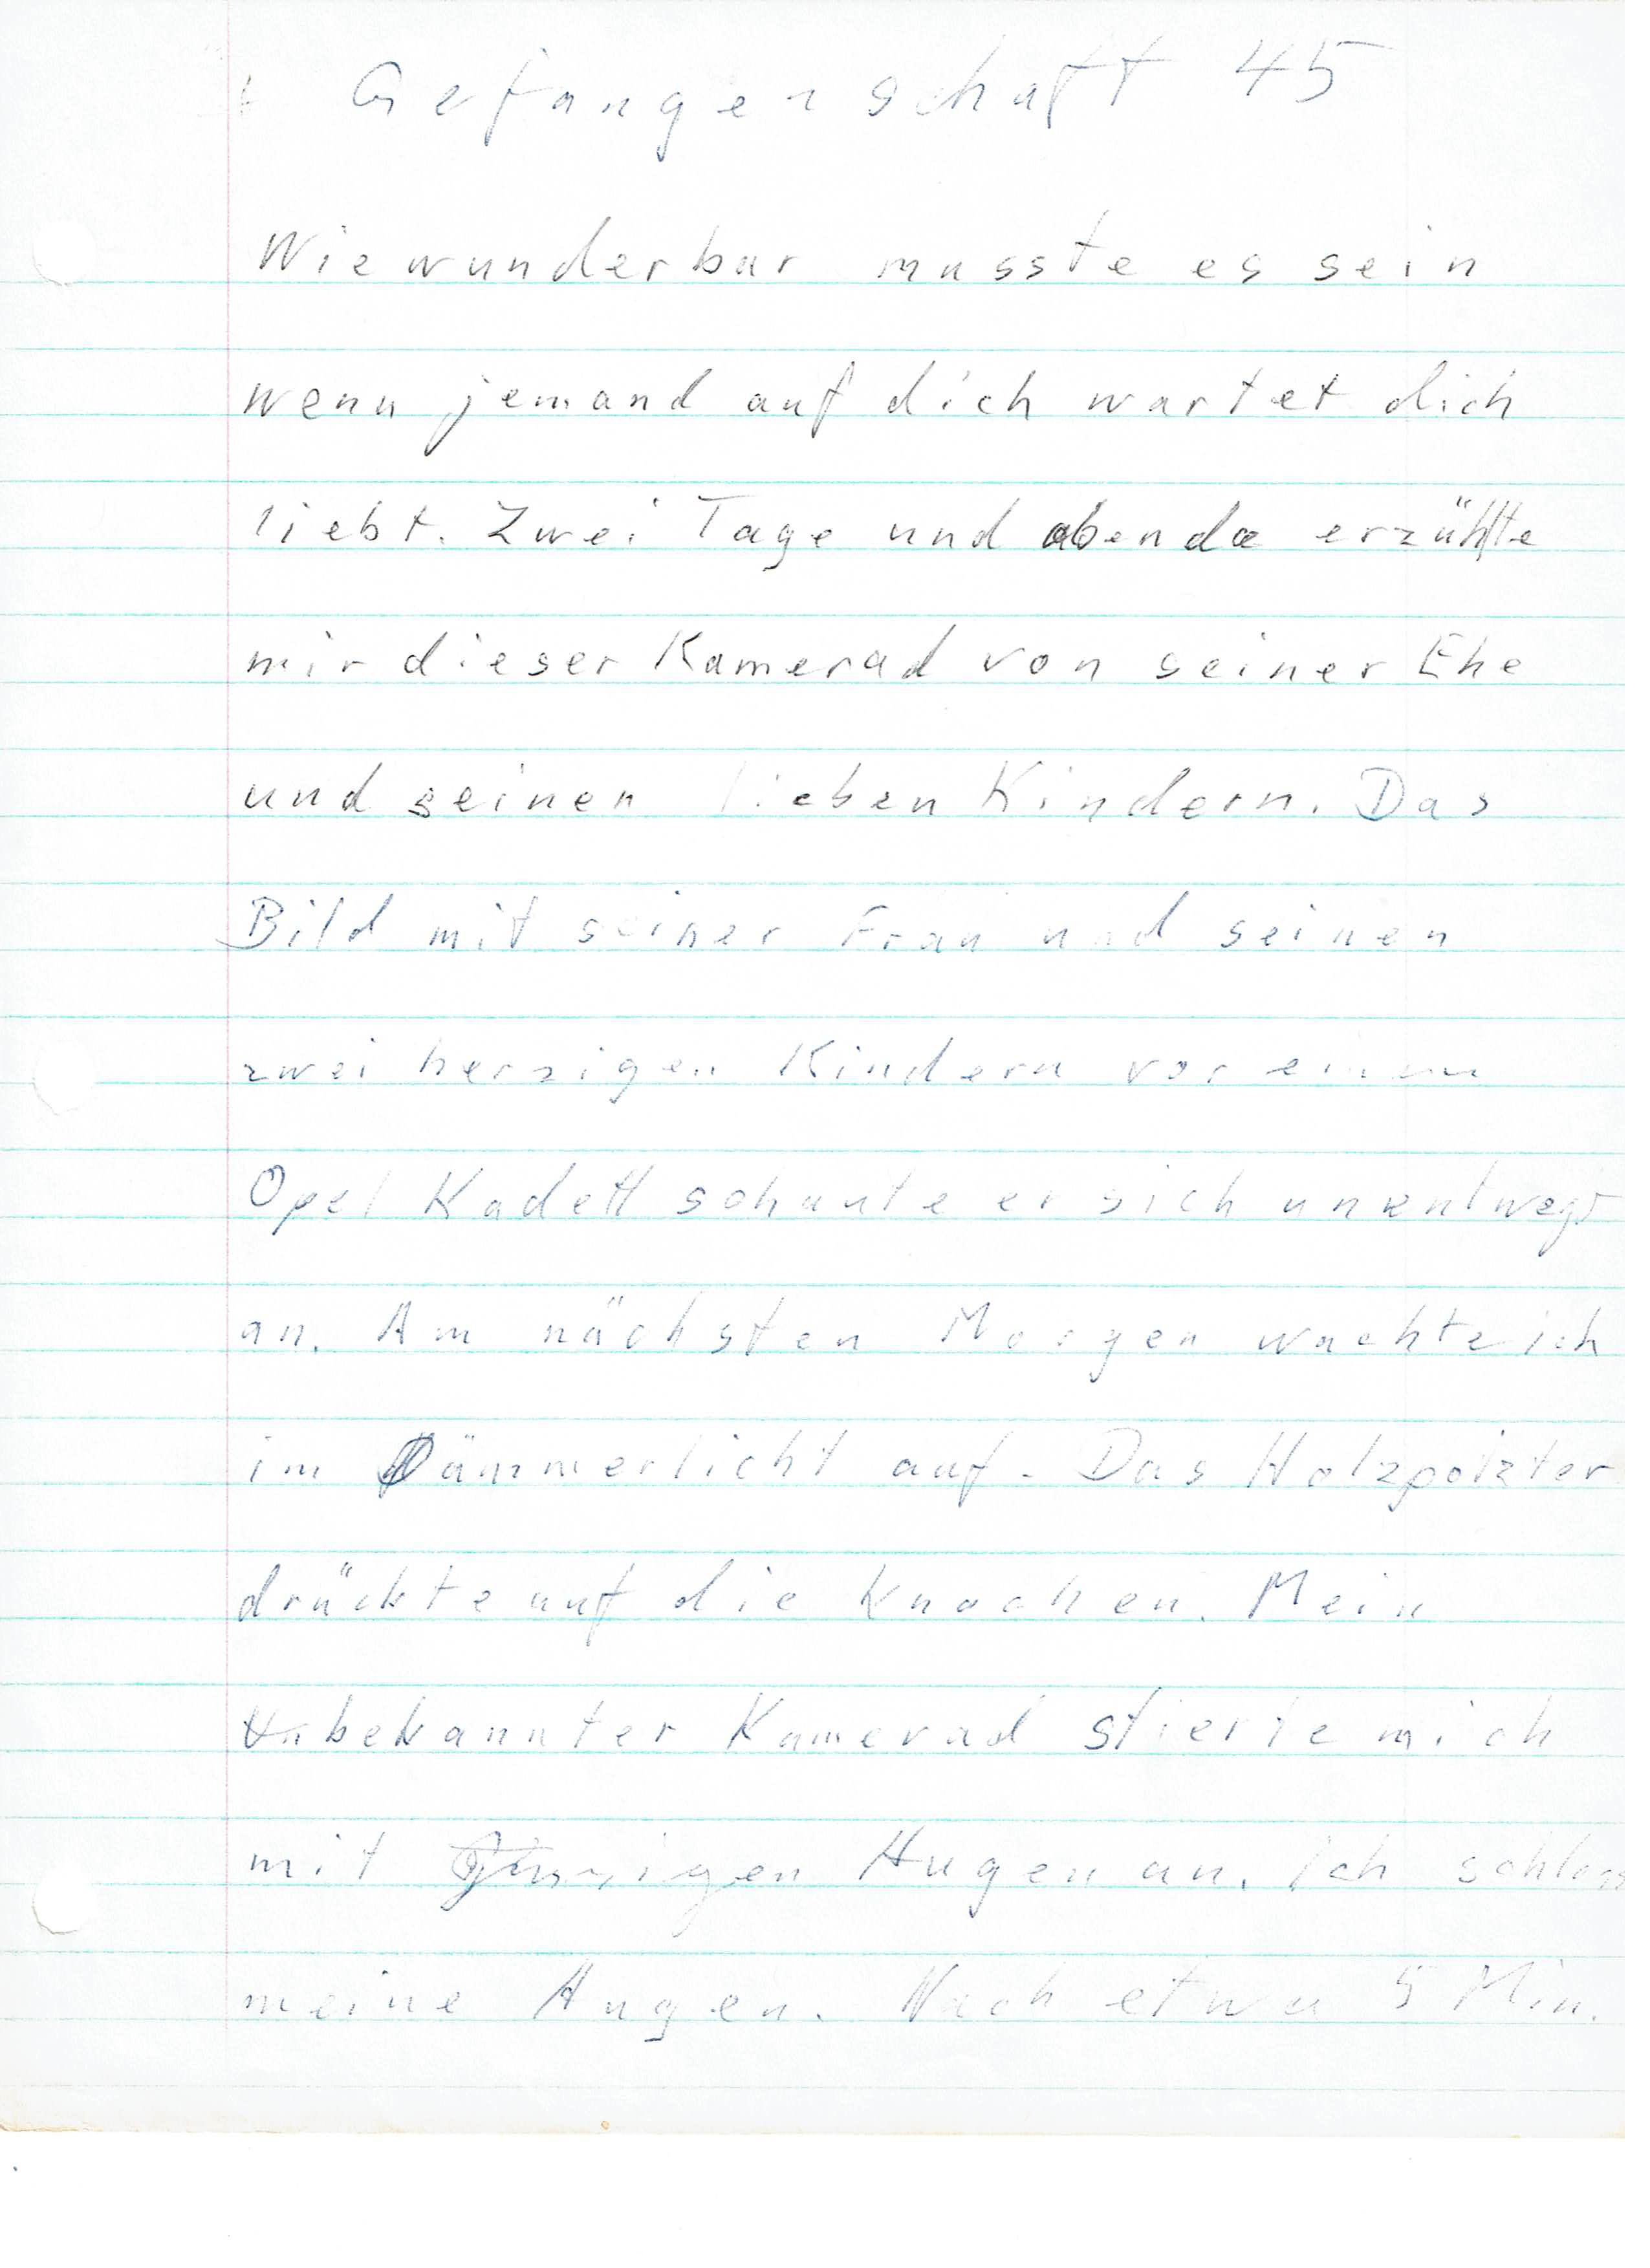 Gefangenschaft 45
Wie wunderbar musste es sein
wenn jemand auf dich wartet dich
liebt. Zwei Tage und abende erzählte
mir dieser Kamerad von seiner Ehe
und seinen lieben Kindern. Das
Bild mit seiner Frau und seinen
zwei herzigen Kindern vor einem
Opel Kadett schaute er sich unentwegt
an. Am nächsten Morgen wachte ich
im Dämmerlicht auf. Das Holzpolzter
drückte auf die Knochen. Mein
Unbekannter Kamerad stierte mich
mit Augen an. Ich schloss
meine Augen. Nach etwa 5 Min.